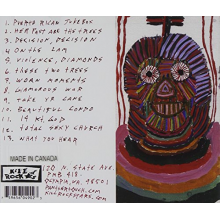 1. PUERTO RICAN JUKEBOX
2. HER FEET ARE THE TREES
3. DECISION, DECISION
4. ON THE LAM
5. VIOLENCE, DIAMONDS
6. THESE TWO TREES
7. WORN MOMENTS
8. GLAMOROUS WAR
9. TAKE YR CANE
10. BEAUTIFUL CONGO
11. 19 K! GOD
12. TOTAL SEXY CHURCH
13. WHAT YOU HEAR
MADE IN CANADA
KILL
ROCK
120 N. STATE AVE.
PMB 418
OLYMPIA, WA. 98501
KILLROCKSTARS.COM